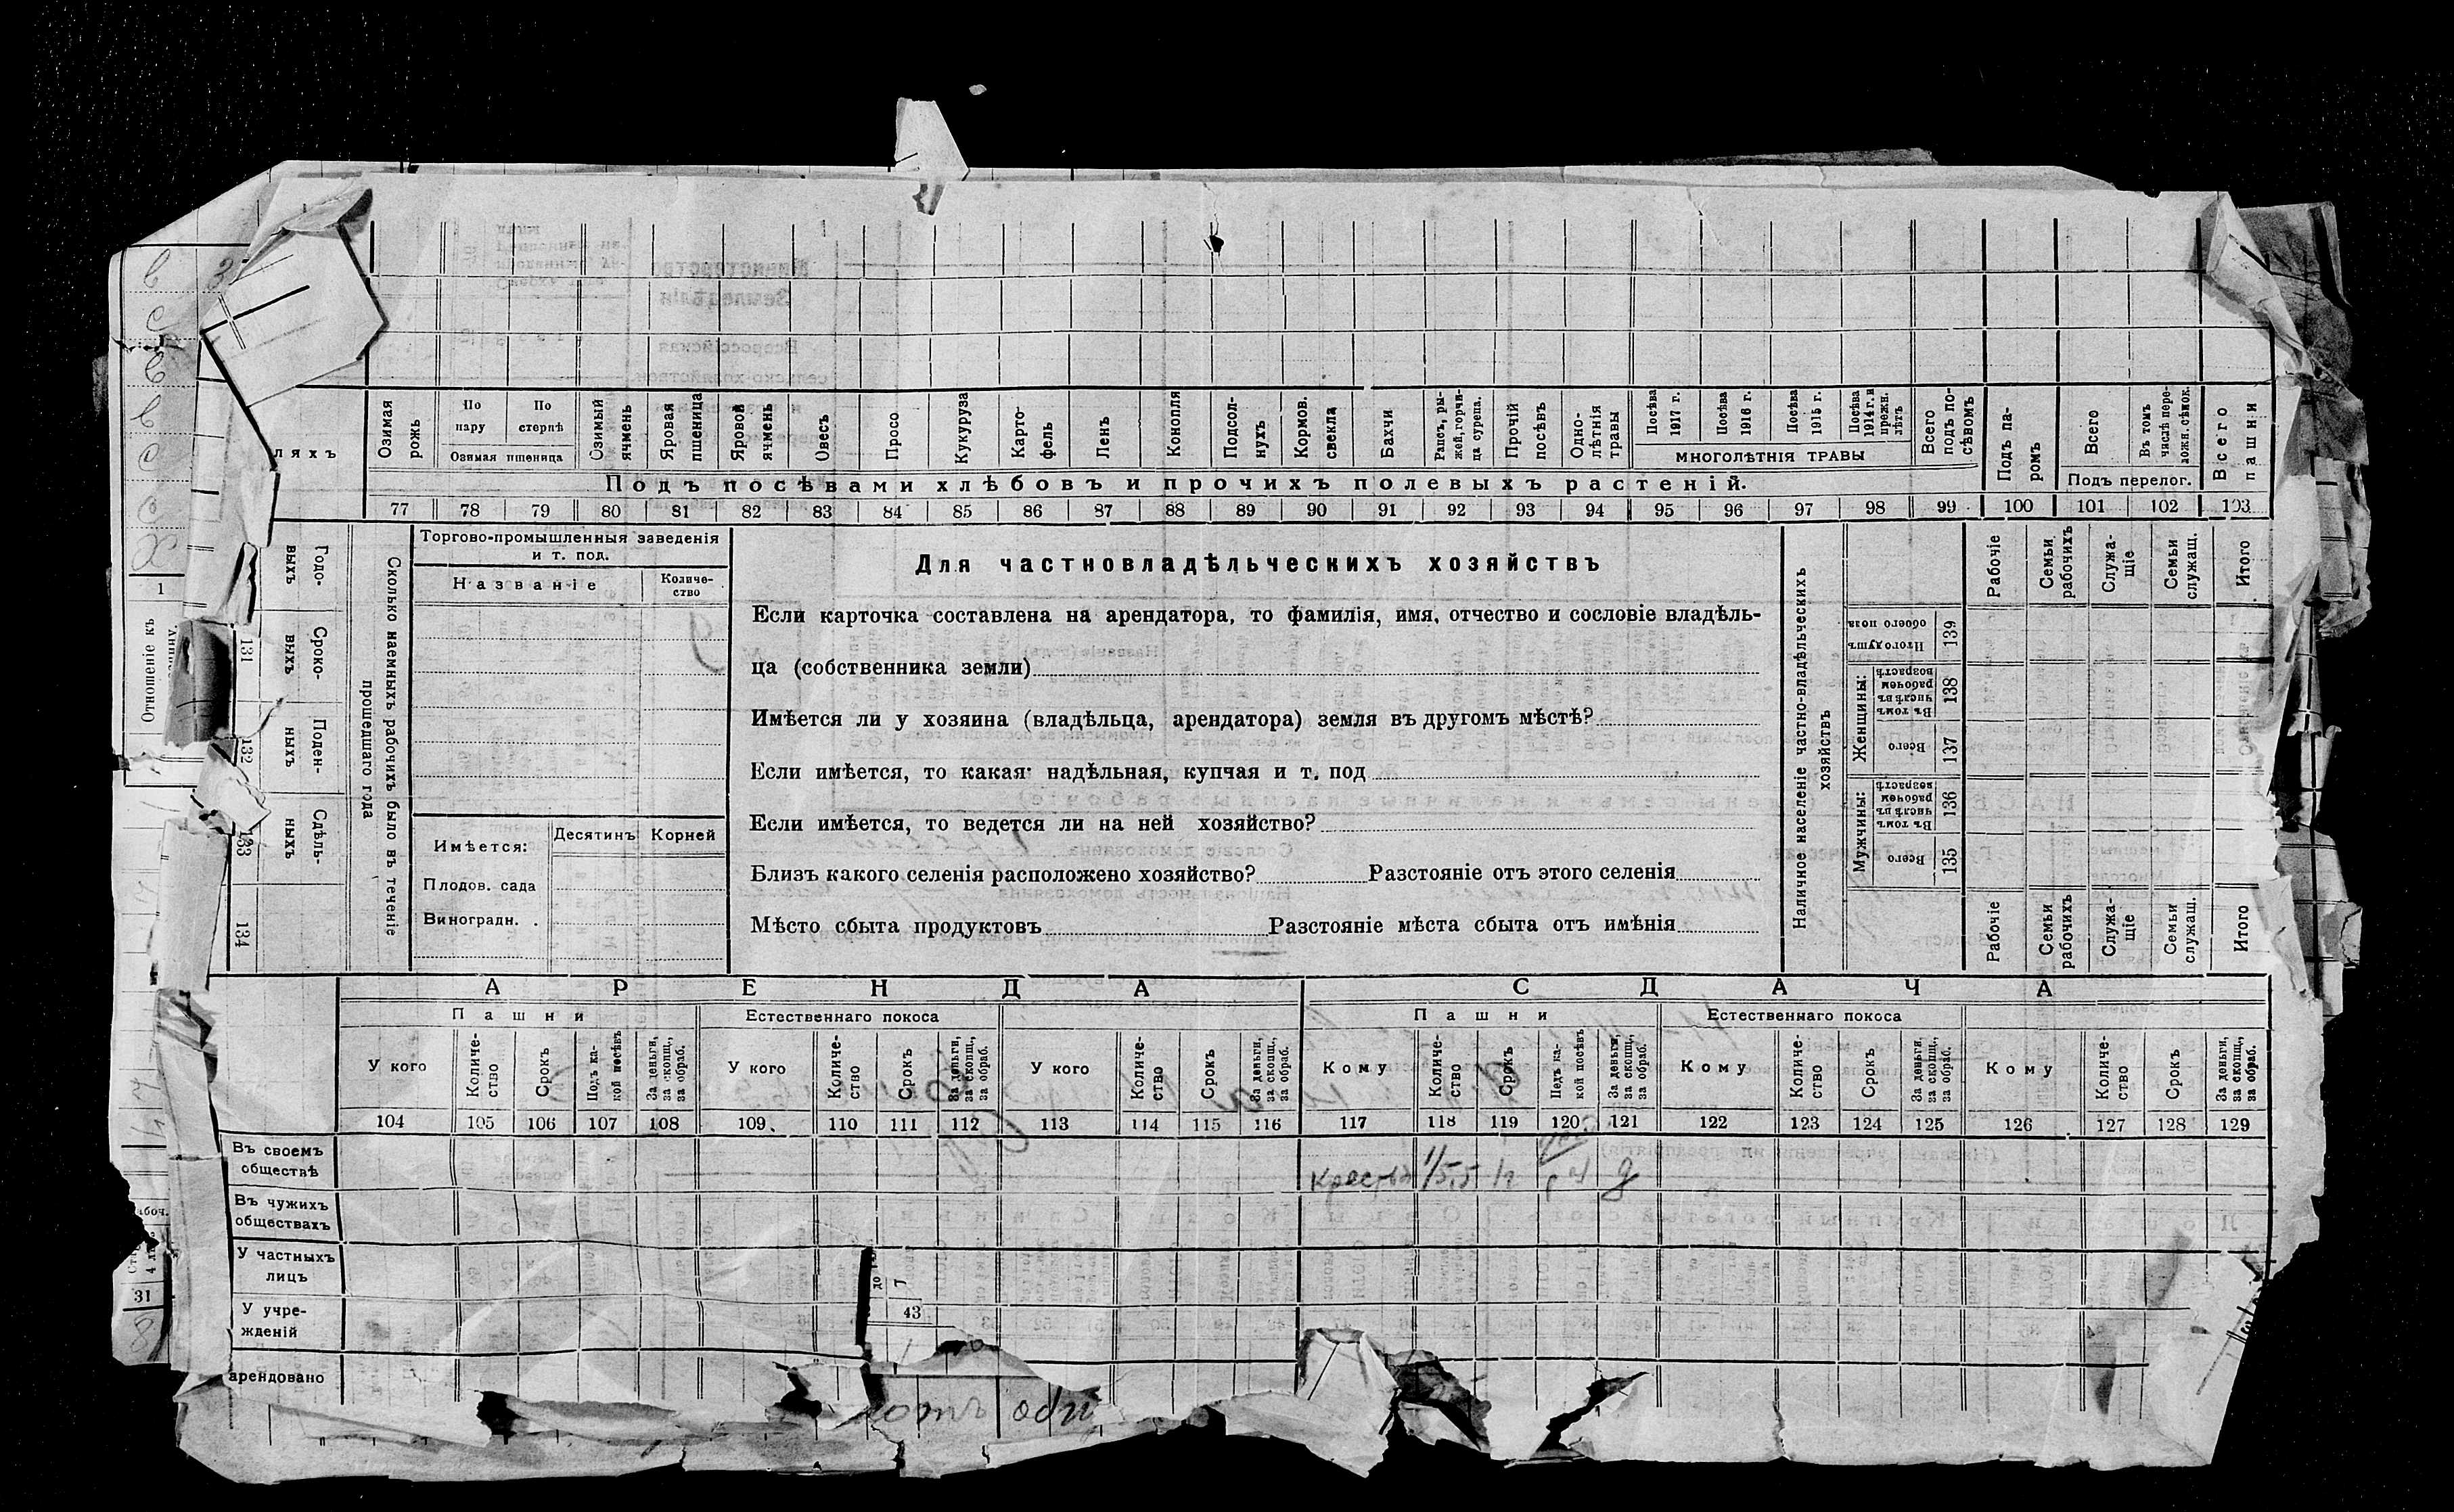 ляхъ
Озимая рожь
По пару
По стернѣ
Озимая пшеница
Озимый ячмень
Яровая пшеница
Яровой ячмень
Овесъ
Просо
Кукуруза
Карто-
фель
Ленъ
Конопля
Подсол-
нухъ
Кормов. свекла
Бахчи
Рапсъ, ры-
жей, горчи-
ца сурепа.
Прочій посѣвъ
Одно-
лѣтнія
травы
Посѣва 1917 г.
Посѣва 1916 г.
Посѣва 1915 г.
Посѣва 1914 г. и прежн. лѣтъ
МНОГОЛѢТНІЯ ТРАВЫ
Всего подъ по-
сѣвомъ
Подъ па-
ромъ
Всего
Въ томъ числѣ пере-
ложн. сѣнок.
Подъ перелог.
Всего пашни
Подъ посѣвами хлѣбовъ и прочихъ полевыхъ растеній.
77 78 79 80 81 82 83 84 85 86 87 88 89 90 91 92 93 94 95 96 97 98 99 100 101 102 103
1
Отношеніе къ
131
132
133
134
Годо-
выхъ
Сроко-
выхъ
Поден-
ныхъ
Сдѣль-
ныхъ
Сколько наемныхъ рабочихъ было въ теченіе
прошедшаго года
Торгово-промышленныя заведенія
и т. под.
Названіе
Количе-
ство
Имѣется:
Десятинъ
Корней
Плодов. сада
Виноградн.
Для частновладѣльческихъ хозяйствъ
Если карточка составлена на арендатора, то фамилія, имя, отчество и сословіе владѣль-
ца (собственника земли)
Имѣется ли у хозяина (владѣльца, арендатора) земля въ другомъ мѣстѣ?
Если имѣется, то какая: надѣльная, купчая и т. под
Если имѣется, то ведется ли на ней хозяйство?
Близъ какого селенія расположено хозяйство? Разстояніе отъ этого селенія
Мѣсто сбыта продуктовъ Разстояніе мѣста сбыта отъ имѣнія
Наличное населеніе частно-владѣльческихъ
хозяйствъ
Рабочіе
Семьи рабочихъ
Служа-
щіе
Семьи служащ.
Итого
Итого душъ обоего пола
139
Женщины:
Въ томъ числѣ въ рабочемъ возрастѣ
138
Всего
137
Мужчины:
Въ томъ числѣ въ рабочемъ возрастѣ
136
Всего
135
Рабочіе
Семьи рабочихъ
Служа-
щіе
Семьи служащ.
Итого
АРЕНДА
СДАЧА
Пашни
Естественнаго покоса
Пашни
Естественнаго покоса
У кого
Количе-
ство
Срокъ
Подъ ка-
кой посѣвъ
За деньги, за скопщ., за обраб.
У кого
Количе-
ство
Срокъ
За деньги, за скопщ., за обраб.
У кого
Количе-
ство
Срокъ
За деньги, за скопщ., за обраб.
Кому
Количе-
ство
Срокъ
Подъ ка-
кой посѣвъ
За деньги, за скопщ., за обраб.
Кому
Количе-
ство
Срокъ
За деньги, за скопщ., за обраб.
Кому
Количе-
ство
Срокъ
За деньги, за скопщ., за обраб.
104 105 106 107 108 109 110 111 112 113 114 115 116 117 118 119 120 121 122 123 124 125 126 127 128 129
Въ своемъ
обществѣ
Въ чужихъ
обществахъ
У частныхъ
лицъ
У учре-
жденій
арендовано
31
43